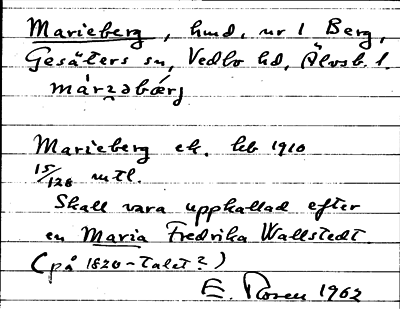 Marieberg, hmd. nr 1 Berg,
Gesäters sn, Vedbo hd, Älvsb. l.
márʒəbǽrj
Marieberg ek. hb 1910
15/128 mtl.
Skall vara uppkallad efter
en Maria Fredrika Wallstedt
(på 1820-talet?)
E. Rosen 1962